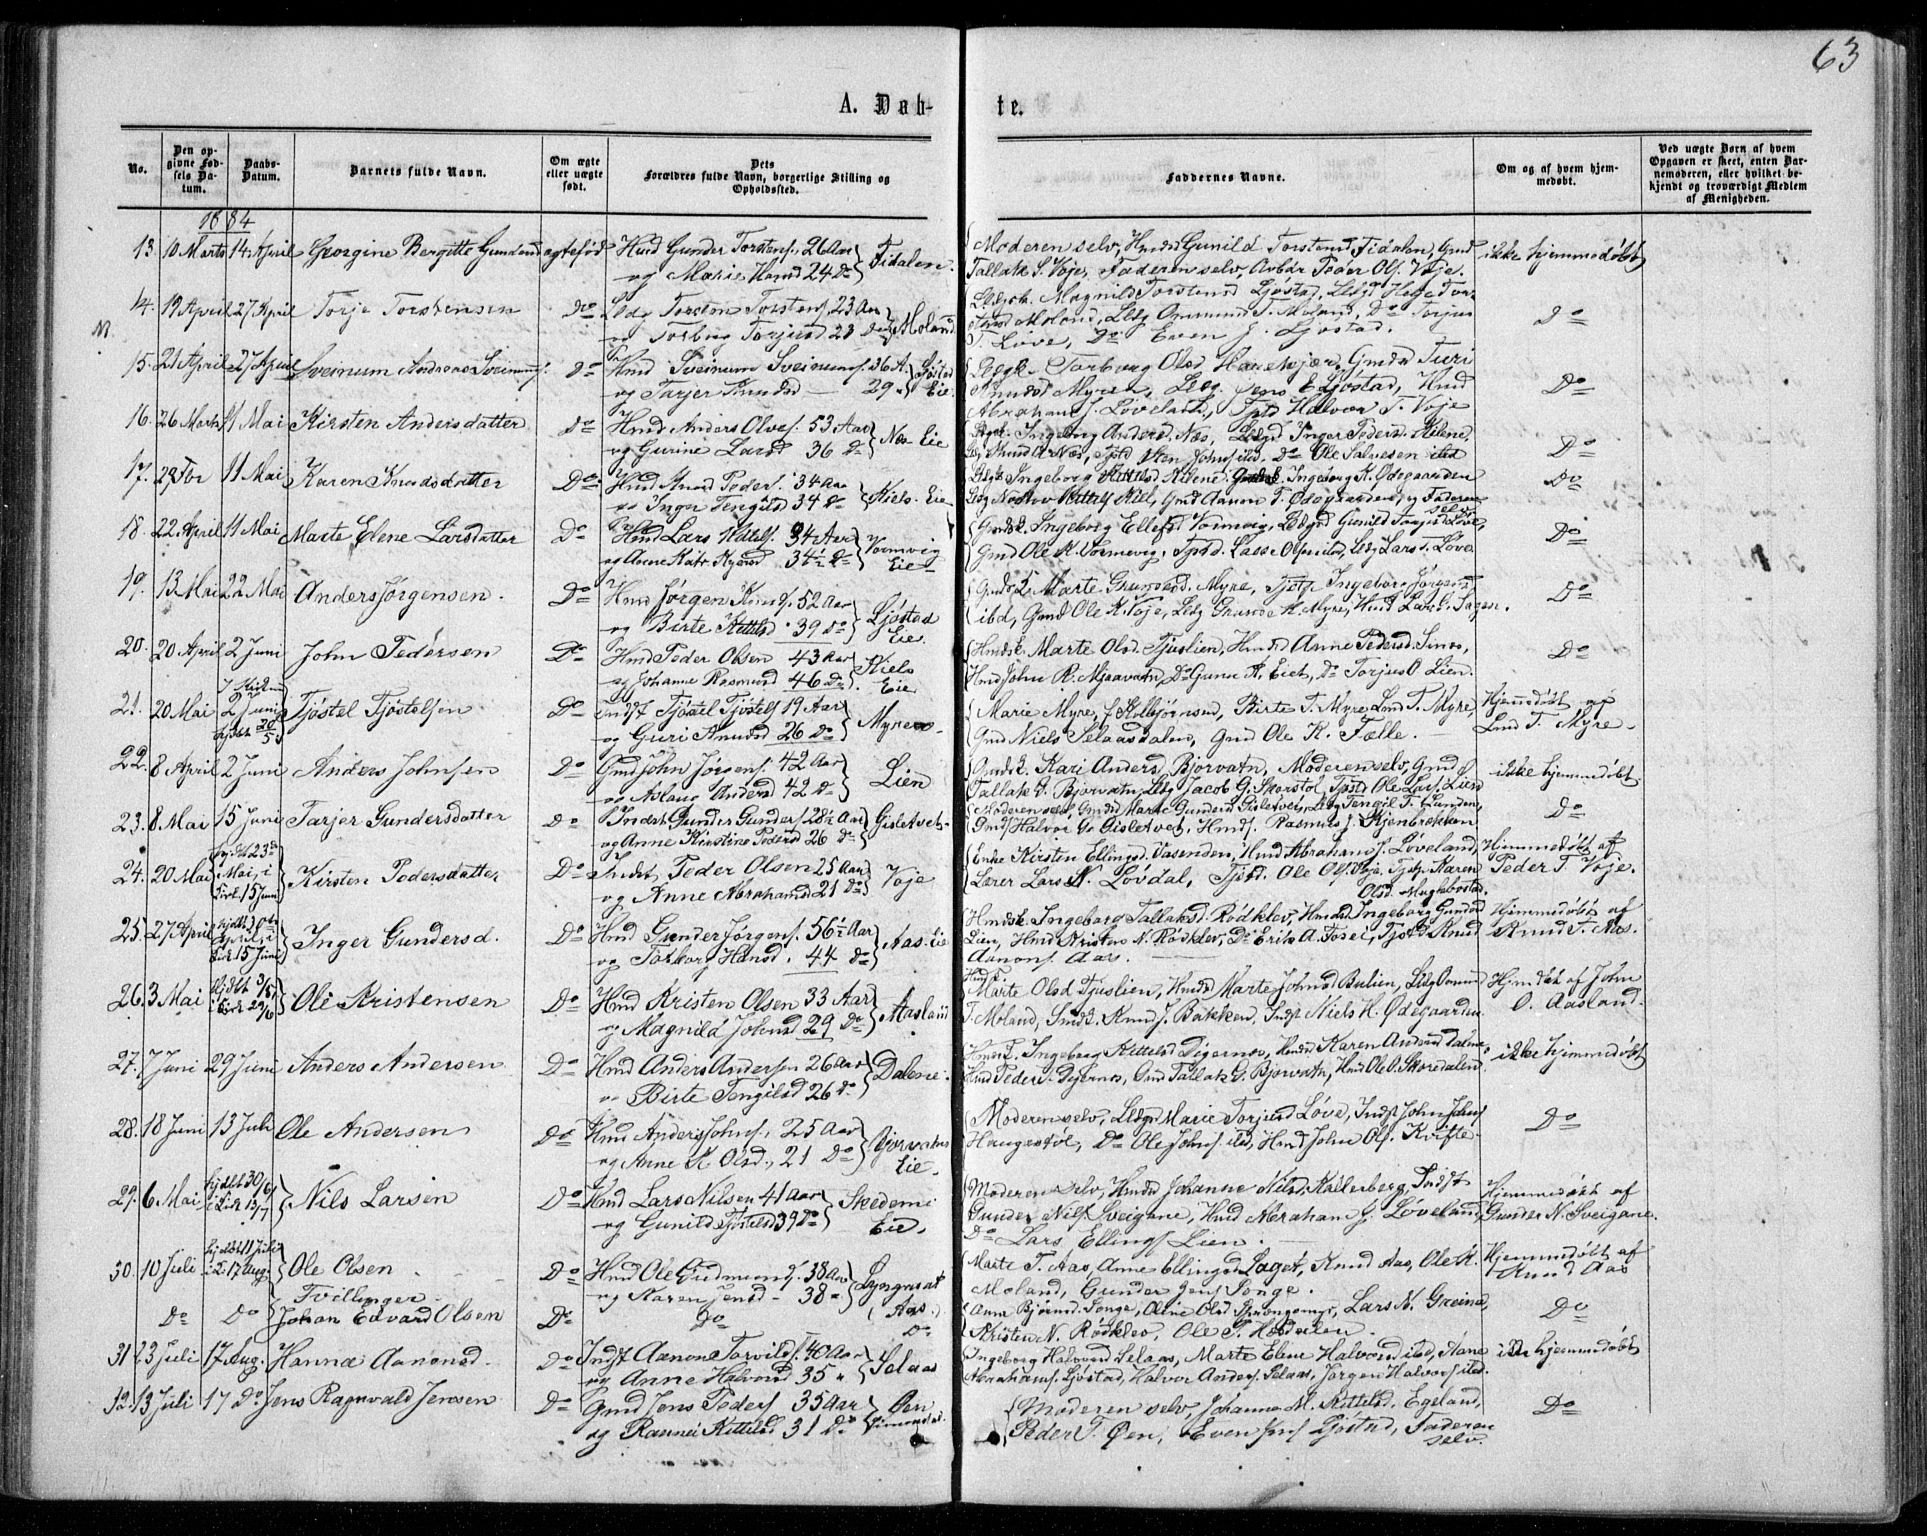 63
A. Døb-
te.
No.
Den op-
givne Fød-
sels Da-
tum.
Daabs-
Datum.
Barnets fulde Navn.
Om ægte
eller uægte
født.
Dets
Forældres fulde Navn, borgerlige Stilling og
Opholdssted.
Faddernes Navne.
Om og af hvem hjem-
medøbt.
Ved uægte Børn af hvem
Opgaven er skeet, enten Bar-
nemoderen, eller hvilket be-
kjendt og troværdigt Medlem
af Menigheden.
1884
13. 10 Marts 14 April Georgine Bergitte Gundersd ægtefød Hmd Gunder Torstens. 26 Aar
og Marie Hansd 24 Do Fidalen
Moderen selv, Hmds Gunild Torstensd Fidalen, Gmd
Tallak S. Voje, Faderen selv, Arbdr Peder Ols. Voje.
ikke hjemmedøbt
14. 19 April 27 April Torje Torstensen Do Torsten Torstens 23 Aar
og Torborg Torjusd 23 Moland
Magnild Torstensd Ljøstad, Helge
Moland, Ledg Ommund T. Moland, Do Torjus
T. Løve, Do Even J. Ljøstad.
Do
15. 21 April 27 April Sveinum Andreas Sveinums. Do Hmd Sveinum Sveinums. 36 A
og Tarjer Knudsd 29 " Ljøstad Eie
Torborg Olsd Gmds Turi
Knudsd Myre, Ledg Jens E Ljøstad, Hmd
Abraham J. Løveland, Tjstd Halvor T. Voje
Do
16. 26 Marts 11 Mai Kirsten Andersdatter Do Hmd Anders Olves. 53 Aar
og Gurine Larsd 36 Do Næs Eie
Ingeborg Andersd. Næs, Inger Pedersd. Kilene,
Knud A Næs, Tjstd Sten Johns ibd, Do Ole Salvesen ibd
Do
17. 11 Mai Karen Knudsdatter Do Hmd Knud Peders. 34 Aar
og Inger Tengelsd 34 Do Kiels Eie
Ingeborg Kittelsd Kilene Ingeborg K. Ødegaarden
Kittels Kiil, Gmd Aanon T. Ødegaarden, og Faderen
selv
Do
18. 22 April 11 Mai Marte Elene Larsdatter Do Hmd Lars Kittels. 34 Aar
og Anne Katr. 34½ Do Vormvig Eie
Ingeborg Ellefsd Vormvig, Gunild Torjusd Løve,
Gmd Ole K. Vormevig, Tjstd. Lasse Lars T. Løve.
Do
19. 13 Mai 22 Mai Anders Jørgensen. Do Hmd Jørgen Knuds. 52 Aar
og Birte Kittelsd 39 Do Ljøstad Eie.
Marte Grundesd. Myre, Ingebor Jørgensd
ibd, Gmd Ole K. Voje, Ledg Grunde K. Myre, Hmd Lars L. Sagen.
Do
20. 20 April 2 Juni John Pedersen Do Hmd Peder Olsen 43 Aar
og Johanne Rasmusd 46 Do Kiels Eie
Marte Olsd. Tjuslien, Hmds Anne Pedersd. Simes,
Hmd John R. Mjaavatn, Do Gunn A. Eiet, Do Torjus O Lien.
Do
21. 20 Mai 2 Juni hjdbt 20/5 Tjøstel Tjøstelsen Do Tjøstel Tjøstels 19 Aar
og Guri Knudsd 26 Do Myren
Marie Myre, f Kolbjørnsd, Birte T. Myre Lind T. Myre,
Gmd Niels Selaasdalen, Gmd Ole K. Fælle.
Hjemmedøbt af
Lind T. Myre
22. 8 April 2 Juni Anders Johnsen Do Gmd John Jørgens. 42 Aar
og Aslaug Andersd 42 Do Lien
Kari Andersd Bjorvatn, Moderen selv, Gmd
Tallak G. Bjorvatn Ledg Jacob G. Skorstøl, Tjstd Ole Lars. Lien
ikke hjemmedøbt
23. 8 Mai 15 Juni Tarjer Gundersdatter Do Gunder Gunders 28½ Aar
og Anne Kirstine Pedersd 26 Do Gisletvet
Moderen selv, Gmds Marte Gundersd Gisletvet, Ledg Tengel T. Lunden,
Gmd Halvor G. Gisletvet, Hmds. Rasmus J. Kjenbrekken
Do
24. 20 Mai hjdbt 23de Mai, i Kirk 15 Juni Kirsten Pedersdatter Do Indst. Peder Olsen 25 Aar
og Anne Abrahamsd 21 Do Voje
Enke Kirsten Ellingsd. Vasenden, Hmd Abraham J. Løveland,
Lærer Lars N. Løvdal, Tjstd. Ole Ols. Voje, Karen
Olsd. Myglebostad.
Hjemmedøbt af
Peder T. Voje.
25. 27 April 15 Juni Inger Gundersd. Do Hmd Gunder Jørgens. 56½ Aar
og Torborg Hansd. 44 Do Aas-Eie
Ingeborg Tallaksd. Rødklev, Hmds Ingeborg Gundersd
Lien, Hmd Kristen N. Rødklev, Do Erik A. Fosei, Tjstd Knud
Aanons. Aas.
Hjemmedøbt af
Knud T. Aas.
26. 3 Mai hjdbt 3/5 i Kirk 29/6 Ole Kristensen Do Hmd Kristen Olsen 33 Aar
og Magnild Johnsd 29 Do Aasland
Marte Olsd Tjuslien, Hmds Marte Johnsd Bulien, Ledg Ommund
T. Moland, Knud J. Bakken, Indst Niels H. Ødegaarden
Hjemdbt af John
O. Aasland.
27. 7 Juni 29 Juni Anders Andersen Do Hmd Anders Andersen 26 Aar
og Birte Tengelsd 26 Do Dalene.
Ingeborg Kittelsd Digernes, Hmds Karen Andersd Dalene,
Hmd Peder Digernes, Gmd Tallak G. Bjorvatn, Hmd Ole O. Skoredalen.
ikke hjemmedøbt
28. 18 Juni 13 Juli Ole Andersen Do Hmd Anders Johns. 25 Aar
og Anne K. Olsd. 21 Do Bjorvatns Eie
Moderen selv, Ledgp Marie Torjusd Løve, Indst John Johns
Haugestøl, Do Ole Johns ibd, Hmd John Ols. Kvifte.
Do
29. 6 Mai hjdbt 30/6 i Kirk 13/7 Nils Larsen Do Hmd Lars Nilsen 41 Aar
og Gunild Tjøstelsd 39 Do Skedemi Eie,
Moderen selv, Hmds Johanne Nilsd Kallerberg, Indst
Gunder Nils Sveigane, Hmd Abraham G. Løveland,
Do Lars Ellings Lien.
Hjemmedøbt af
Gunder N. Sveigane.
30. 10 Juli hjdbt 11 Juli 17 Aug. Ole Olsen Do Hmd Ole Gudmunds. 38 Aar
og Karen Jensd 38 " Lyngmoat (Aas.)
Marte T. Aas, Anne Ellingsd Laget, Knud Aas, Ole K.
Moland, Gunder Jens Songe.
Hjemmedøbt af
Knud Aas
Tvillinger
Do Do Johan Edvard Olsen Do Do Do
Bjørnsd. Songe, Oline Olsd Sprangemyr, Lars N. Greinæ,
Kristen N. Rødklev, Ole T. Hesdalen.
Do
31 23 Juli 17 Aug. Hanna Aanonsd. Do Indst Aanon Torvilds. 40 Aar
og Anne Halvorsd 35 " Selaas
Ingeborg Halvorsd Selaas, Marte Elene Halvorsd ibd, Aane
Abrahams. Ljøstad, Halvor Anders. Selaas, Jørgen Halvors. ibd.
ikke hjemmedøbt
32. 13 Juli 17 Do Jens Ragnvald Jensen Do Gmd Jens Peders 35 Aar
og Rannei Kittelsd 31 Do Øen
Moderen selv, Johanne M. Kittelsd. Egeland,
Peder T. Øen, Even Jens Ljøstad, Faderen
selv.
Do